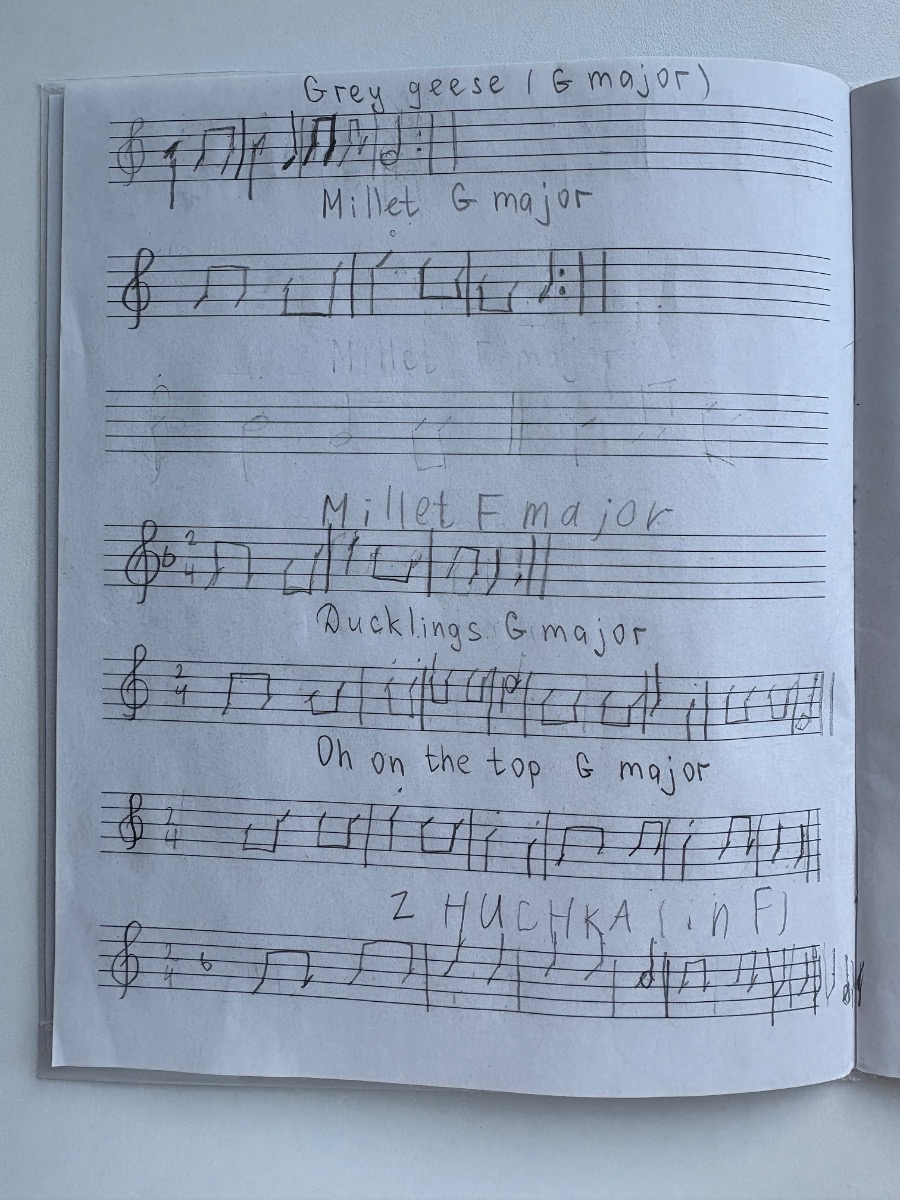 Grey geese ( G major )
Millet G major
Millet F major
Millet F major
2
4
Ducklings G major
2
4
Oh on the top G major
2
4
ZHUCHKA ( in F )
2
4